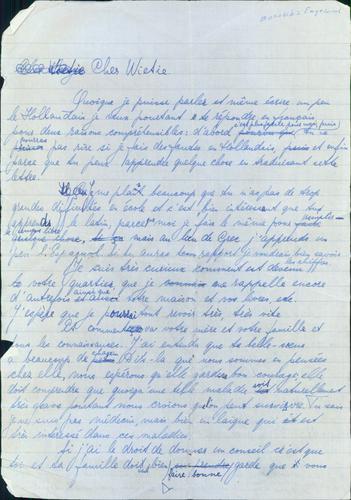 Cher Wietie
Quoique je puisse parler et même écrire un peu
le Hollandais je veux pourtant te répondre en français
pour deux raisons compréhensibles: d'abord tu ne
pourras
pas rire si je fais des fautes en Hollandais, et enfin
parce que tu peux apprendre quelque chose en traduisant cette
lettre.
me plaît beaucoup que tu n'as pas de trop
grandes difficultés en école et c'est bien intéressant que tu
apprends le latin, moi je fais le même pour
quelque chose, mais au lieu de Grec j'apprends un
peu l'Espagnol. Si tu auras ton rapport je voudrais bien savoir
les chiffres.
Je suis très curieux comment est devenu
le votre quartier, que je me rappelle encore
d'autrefois votre maison et vos livres etc.
J'espère que je pourrai tout revoir très, très vite
Et comment va votre mère et votre famille et
tous les connaissances. J'ai entendu que ta belle-soeur
a beaucoup de Dit-la que nous sommes en pensées
chez elle, nous espérons qu'elle garde bon courage, elle
doit comprendre que quoique une telle maladie soit naturellement
très grave pourtant nous croyons qu'on peut survivre. Tu sais
je ne suis pas médecin, mais bien en laïque qui est
très intéressé dans ces maladies.
Si j'ai le droit de donner un conseil c'est que
toi et ta famille bien garde que si vous
faire bonne